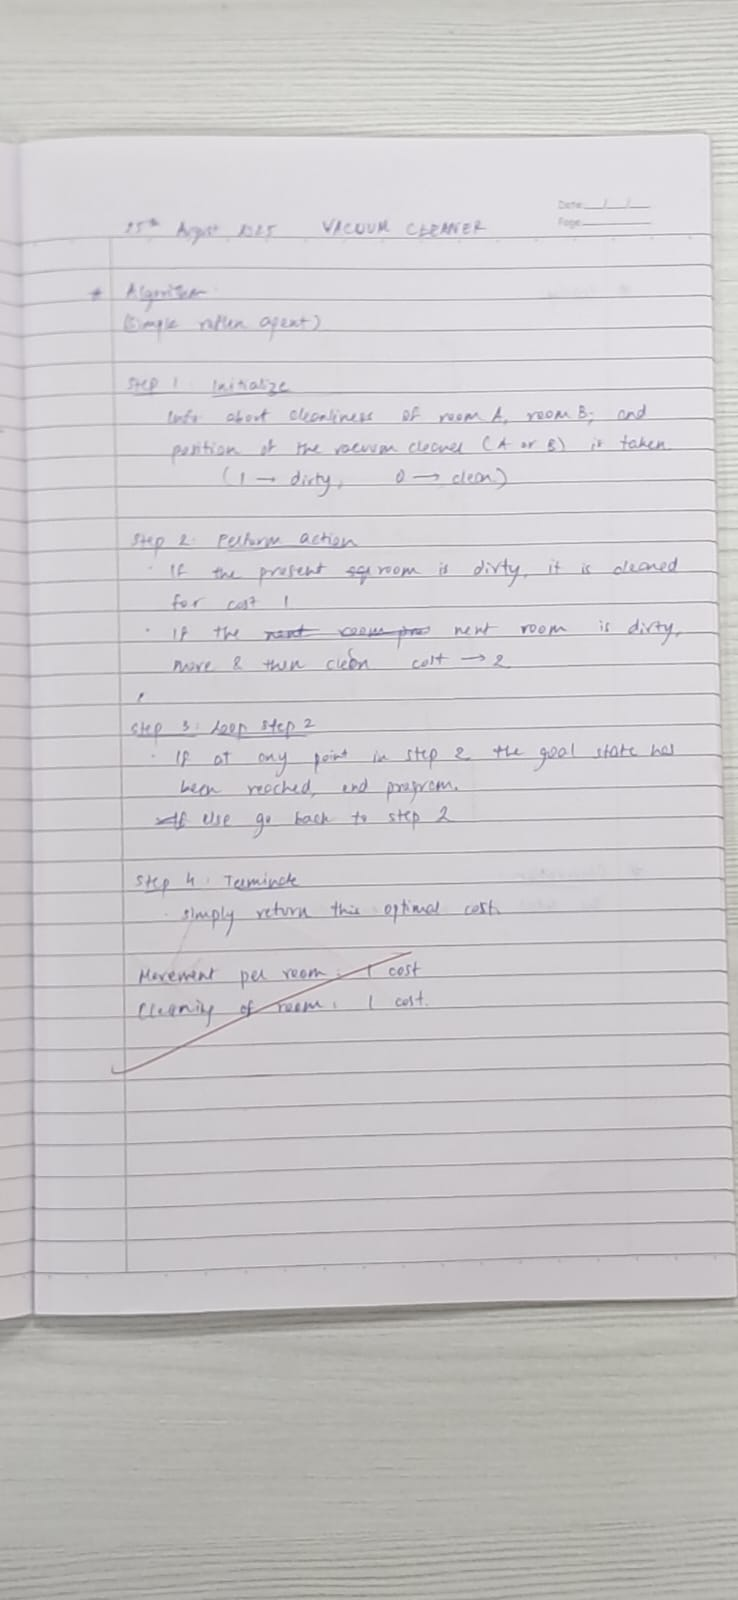 25th August 2025 VACUUM CLEANER
Date: __/__/__
Page:
* Algorithm
(simple reflex agent)
Step 1: Initialize
Info about cleanliness of room A, room B; and
position of the vacuum cleaner (A or B) is taken
(1 → dirty, 0 → clean)
Step 2: Perform action
· If the present room is dirty, it is cleaned
for cost 1
· If the next room is dirty,
move & then clean cost → 2
Step 3: Loop step 2
· If at any point in step 2 the goal state has
been reached, end program.
else go back to step 2
Step 4: Terminate
· simply return this optimal cost.
Movement per room: 1 cost
Cleaning of room: 1 cost.